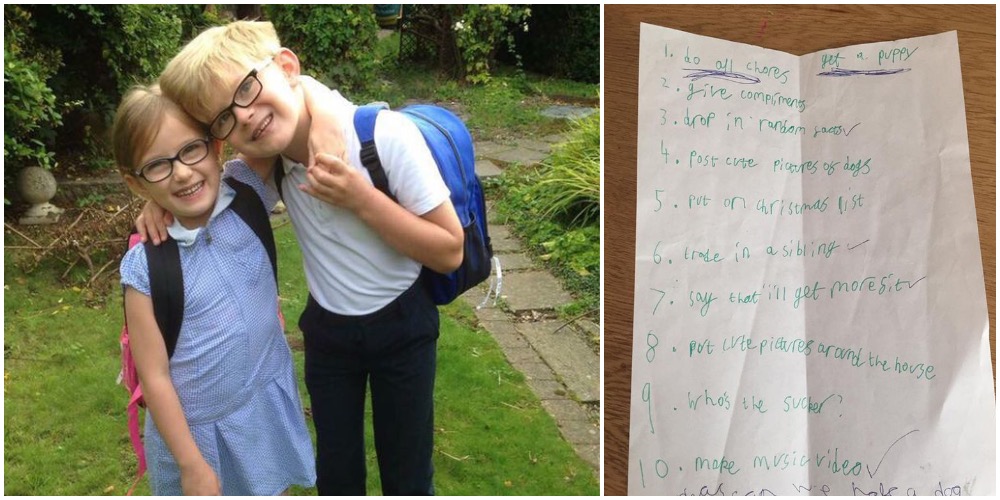 get a puppy
1. do all chores
2. give compliments
3. drop in random facts
4. post cute pictures of dogs
5. put on christmas list
6. trade in a sibling
7. say that i'll get more fit
8. put cute pictures around the house
9. who's the sucker?
10. make music video
we have a dog